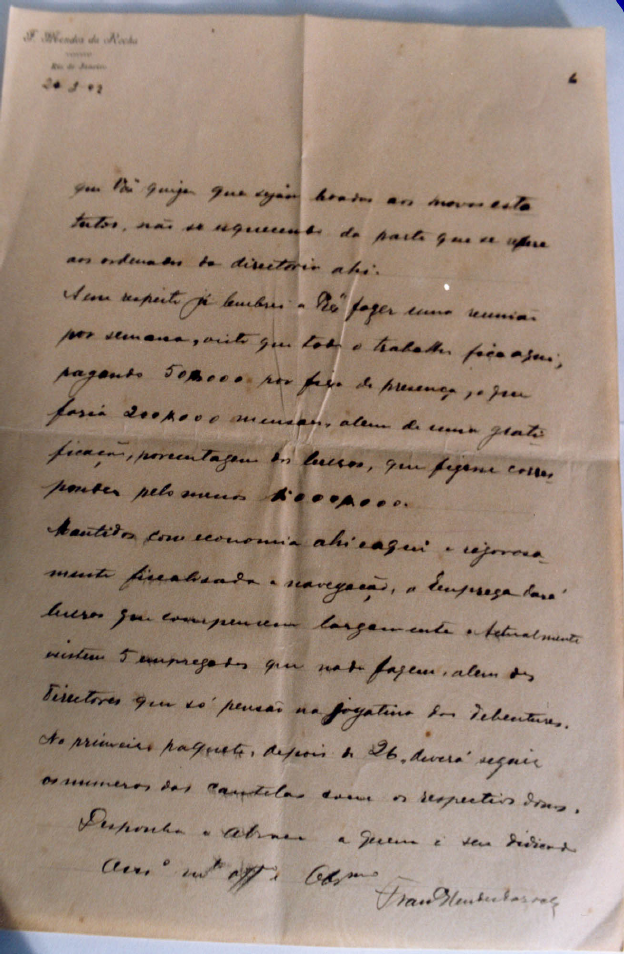 F. Mendes da Rocha
Rio de Janeiro
6
que V.Ex.ª que sejão aos novos esta
tutos, não se esquecendo da parte que se refere
aos ordenados da directoria ahi.
A esse respeito já lembrei a fazer uma reunião
por semana, visto que todo o trabalho fica aqui,
pagando 50$000 por de presença, o que
faria 200$000 mensaes, alem de uma grati-
ficação, porcentagem dos lucros, que fizesse corres
ponder pelo menos
Mantidos com economia ahi e aqui e rigorosa-
mente fiscalisada a navegação, a Empreza dará
lucros que compensem largamente. Actualmente
existem 5 empregados que nada fazem, alem dos
directores que só pensão na jogatina dos debentures.
No primeiro paquete, depois de 26, deverá seguir
os numeros das cautelas com os respectivos donos.
Disponha e a quem é seu